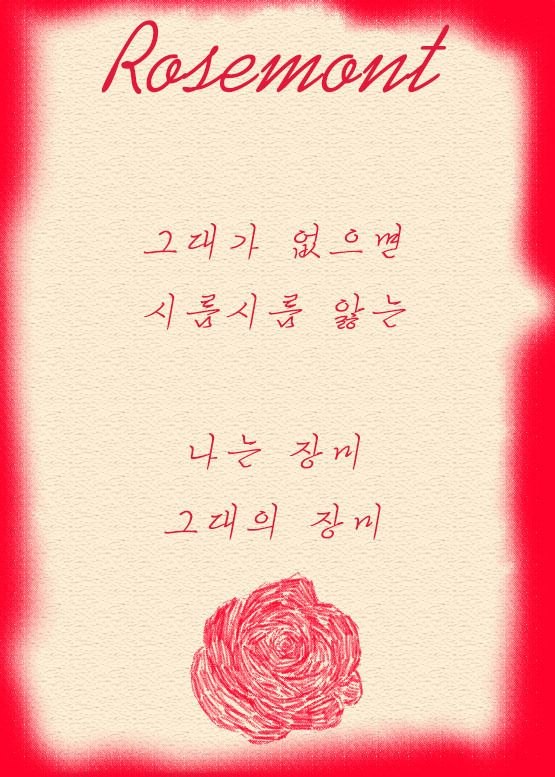 Rosemont
그대가 없으면
시름시름 앓는
나는 장미
그대의 장미